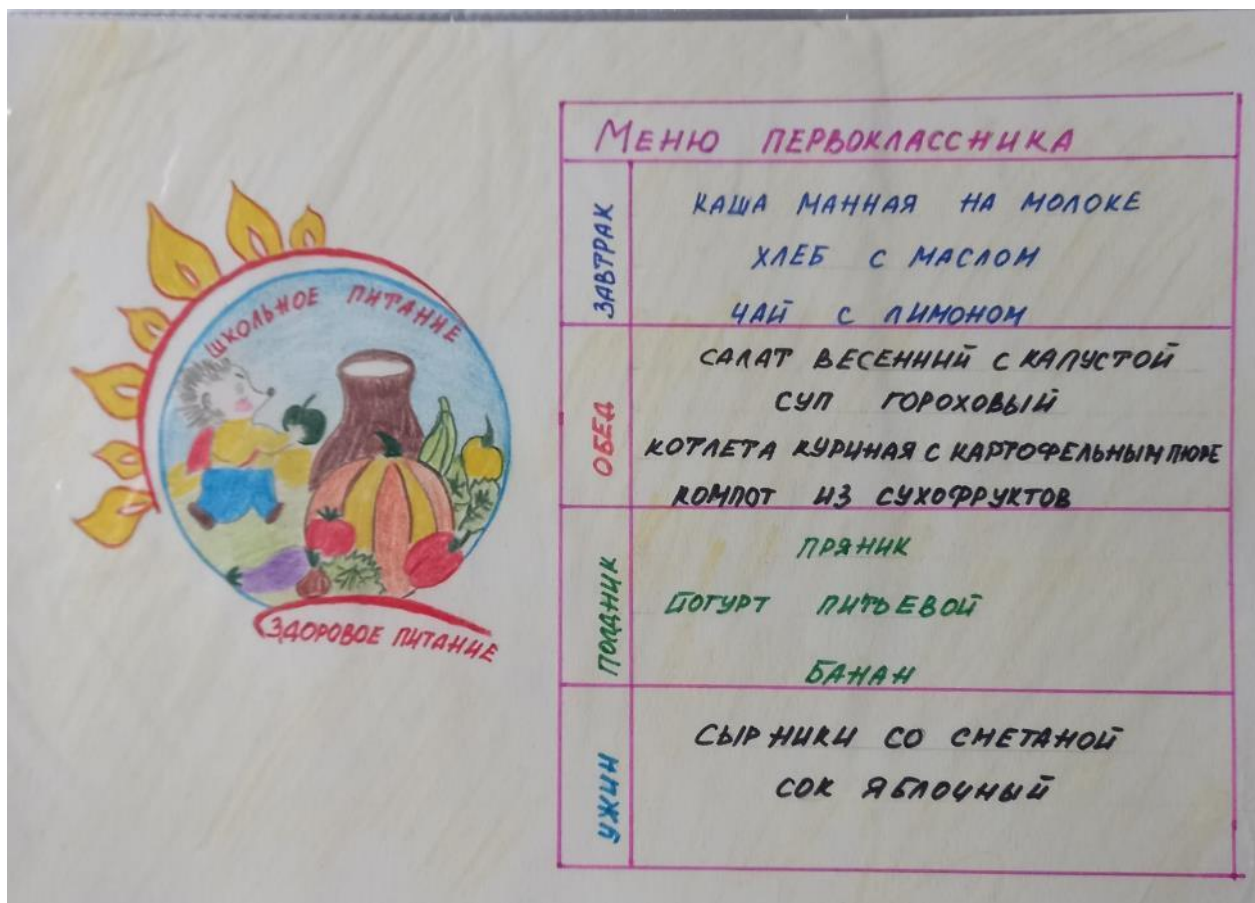 ШКОЛЬНОЕ ПИТАНИЕ
ЗДОРОВОЕ ПИТАНИЕ
МЕНЮ ПЕРВОКЛАССНИКА
ЗАВТРАК
КАША МАННАЯ НА МОЛОКЕ
ХЛЕБ С МАСЛОМ
ЧАЙ С ЛИМОНОМ
ОБЕД
САЛАТ ВЕСЕННИЙ С КАПУСТОЙ
СУП ГОРОХОВЫЙ
КОТЛЕТА КУРИНАЯ С КАРТОФЕЛЬНЫМ ПЮРЕ
КОМПОТ ИЗ СУХОФРУКТОВ
ПОЛДНИК
ПРЯНИК
ЙОГУРТ ПИТЬЕВОЙ
БАНАН
УЖИН
СЫРНИКИ СО СМЕТАНОЙ
СОК ЯБЛОЧНЫЙ